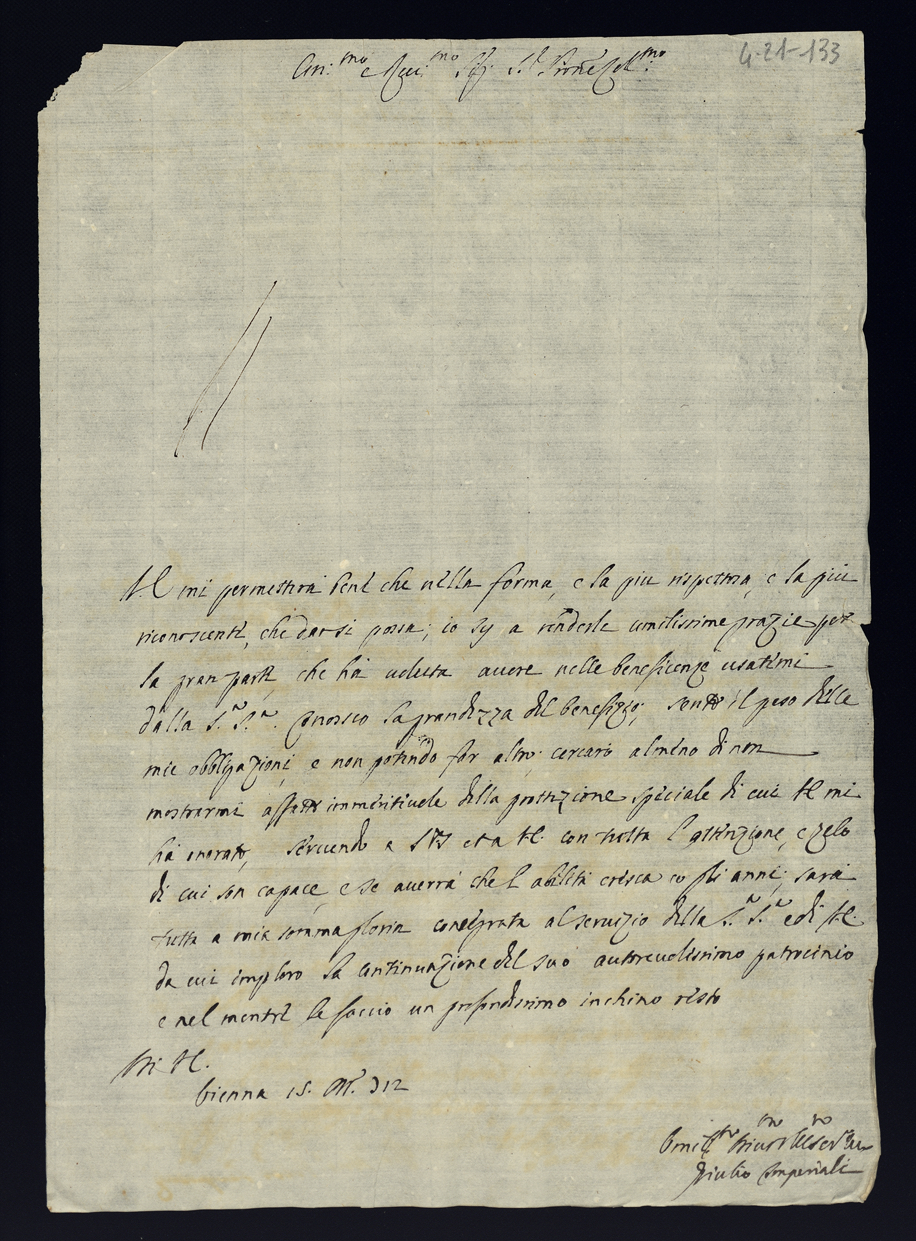 4-21-133
Em:mo e Reu:mo Sig: S.r Prõne Coll.mo
VE mi permetterà bene che nella forma, e la più rispettosa, e la più
riconoscente, che darsi possa; io sij a renderle umilissime grazie per
la gran parte che hà voluta avere nelle beneficenze usatemi
dalla S.a S.a. Conosco la grandezza del benefizio; sento il peso delle
mie obbligazioni, e non potendo far altro; cercarò almeno di non
mostrarmi affatto immeritevole della protezione speciale di cui VE mi
hà onorato, servendo a et a VE. con tutta l'attenzione, e zelo
di cui son capace, e se averrà che l'abilità cresca co gli anni; sarà
tutta a mia somma gloria consegrata al servizio della S.a S.a e di VE.
da cui imploro la continuazione del suo autorevolissimo patrocinio
e nel mentre le faccio un profondissimo inchino resto
Di VE.
Vienna 15. 712
Giulio Imperiali